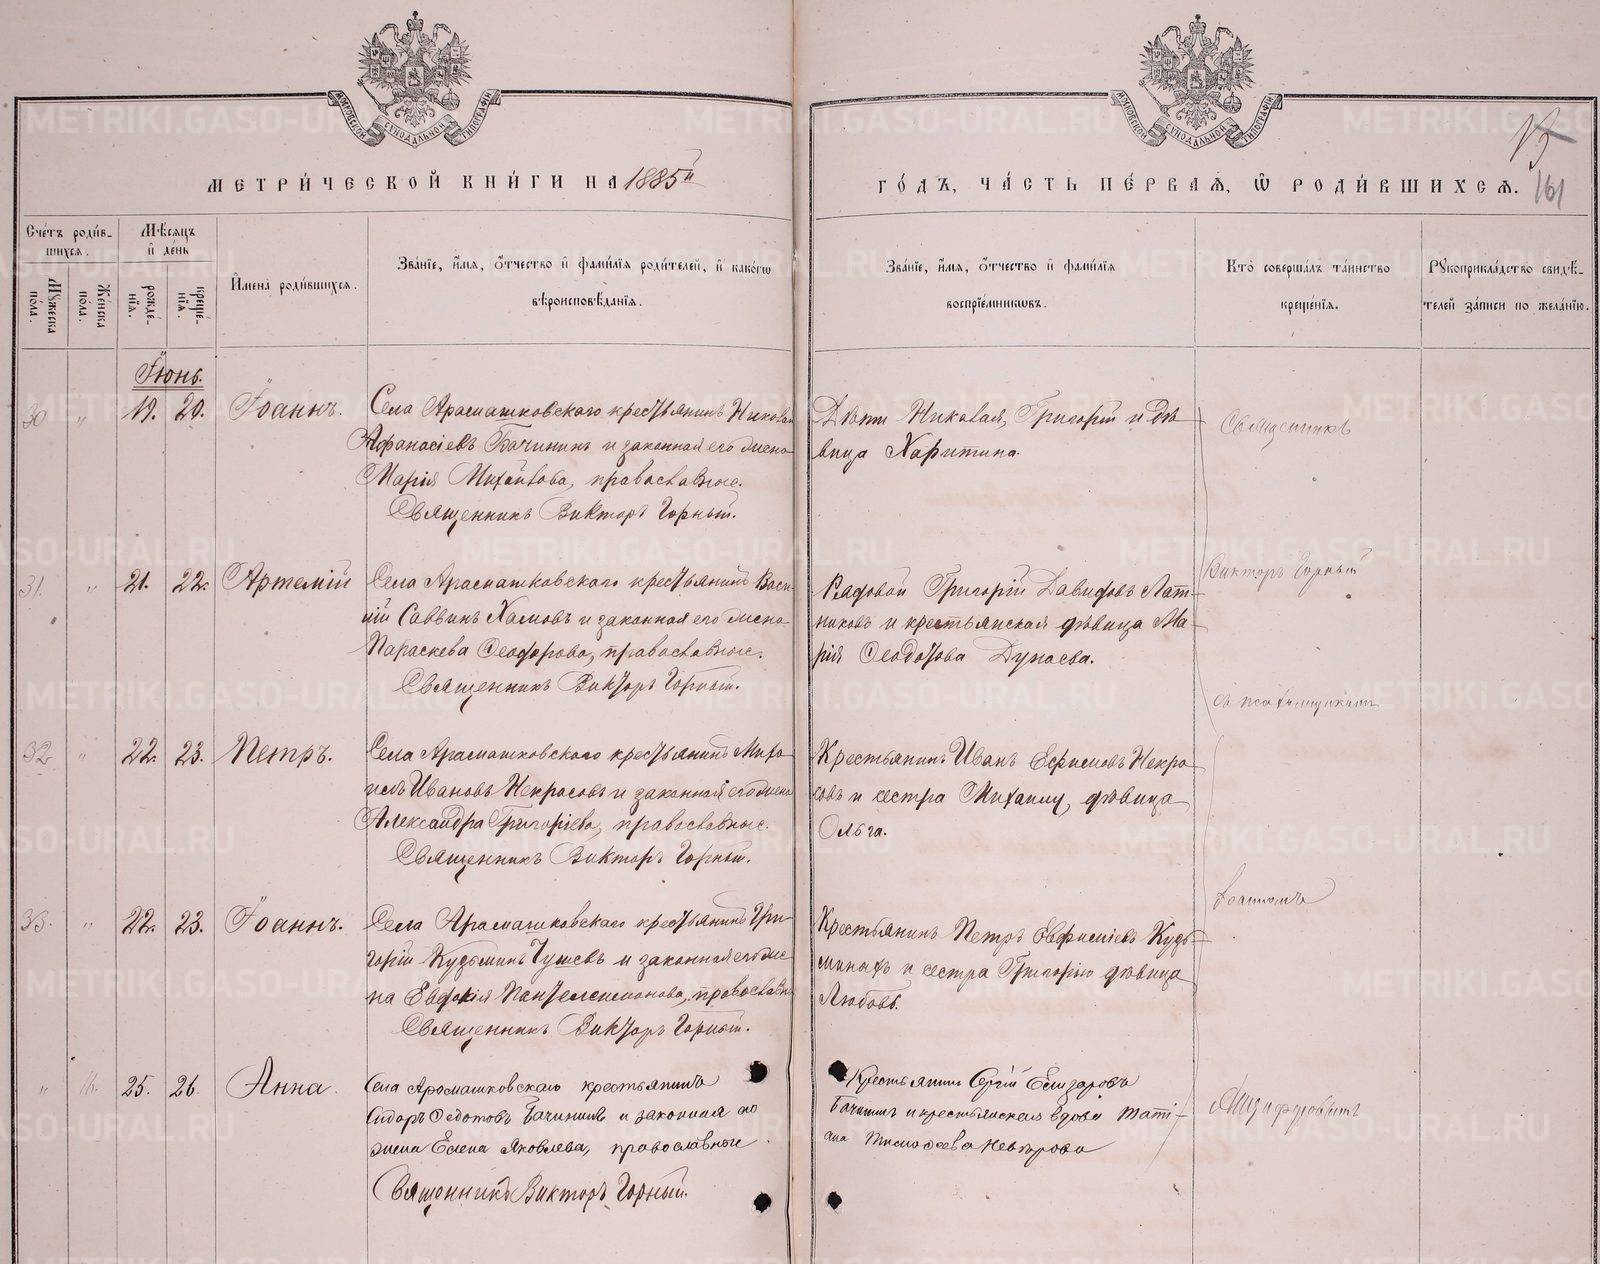 МОСКОВСКОЙ СѴНОДАЛЬНОЙ ТИПОГРАФІИ
МОСКОВСКОЙ СѴНОДАЛЬНОЙ ТИПОГРАФІИ
МЕТРИ́ЧЕСКОЙ КНИ́ГИ НА 1885й
ГО́ДЪ, ЧА́СТЬ ПЕ́РВАѦ, Ѡ РОДИ́ВШИХСѦ. 161
Сче́тъ роди́вшихсѧ.
Мꙋ́жеска по́ла.
Же́нска по́ла.
Мѣ́сѧцъ и де́нь
рожде́нїѧ.
креще́нїѧ.
Имена̀ роди́вшихсѧ.
Зва́нїе, и́мѧ, ѻ́тчество и фами́лїѧ роди́телей, и како́гѡ вѣроисповѣ́данїѧ.
Зва́нїе, и́мѧ, ѻ́тчество и фами́лїѧ воспрїе́мникѡвъ.
Кто̀ соверша́лъ та́инство креще́нїѧ.
Рꙋкоприкла́дство свидѣ́телей за́писи по жела́нїю.
Іюнь.
30 " 19. 20. Іоаннъ.
Села Арамашковскаго крестьянинъ Никола
Афанасіевъ Бачининъ и законная его жена
Марія Михайлова, православные.
Священникъ Викторъ Горный.
Дѣти Николая, Григорій и дѣ-
вица Харитина.
Священникъ
31. " 21. 22. Артемій
Села Арамашковскаго крестьянинъ Васи-
лій Саввинъ Хамовъ и законная его жена
Параскева Ѳеодорова, православные.
Священникъ Викторъ Горный.
Рядовой Григорій Давидовъ Лат-
никовъ и крестьянская дѣвица Ма-
рія Ѳеодотова Дунаева.
Викторъ Горный
съ псаломщикомъ
32 " 22. 23. Петръ.
Села Арамашковскаго крестьянинъ Миха-
илъ Ивановъ Некрасовъ и законная его жена
Александра Григоріева, православные.
Священникъ Викторъ Горный.
Крестьянинъ Иванъ Ефимовъ Некра-
совъ и сестра Михаилу, дѣвица
Ольга.
33. " 22. 23. Іоаннъ.
Села Арамашковскаго крестьянинъ Гри-
горій Кудьминъ Чушевъ и законная его же-
на Евдокія Пантелеимонова, православн
Священникъ Викторъ Горный.
Крестьянинъ Петръ Евфиміевъ Кудь-
миныхъ и сестра Григорію дѣвица
Любовь.
" 16. 25. 26. Анна.
Села Арамашковскаго крестьянинъ
Сидоръ Ѳедотовъ Бачининъ и законная его
жена Елена Яковлева, православные
Священникъ Викторъ Горный.
Крестьянинъ Сергій Елизаровъ
Бачининъ и крестьянская вдова Тати-
ана Тимоѳеева